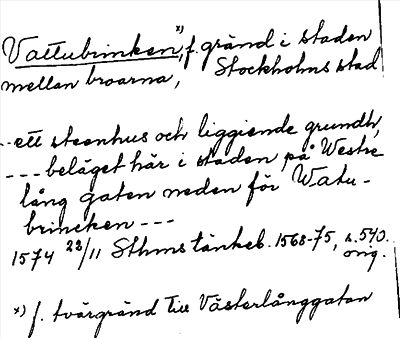 Vattubrinken x), f. gränd i staden
mellan broarna, Stockholms stad
-- ett steenhus och liggiende grundh,
--- beläget här i staden på Westre
lång gaten neden för Watu-
brincken ---
1574 22/11 Sthms tänkeb. 1568-75, s. 540.
orig.
x) f. tvärgränd till Västerlånggatan